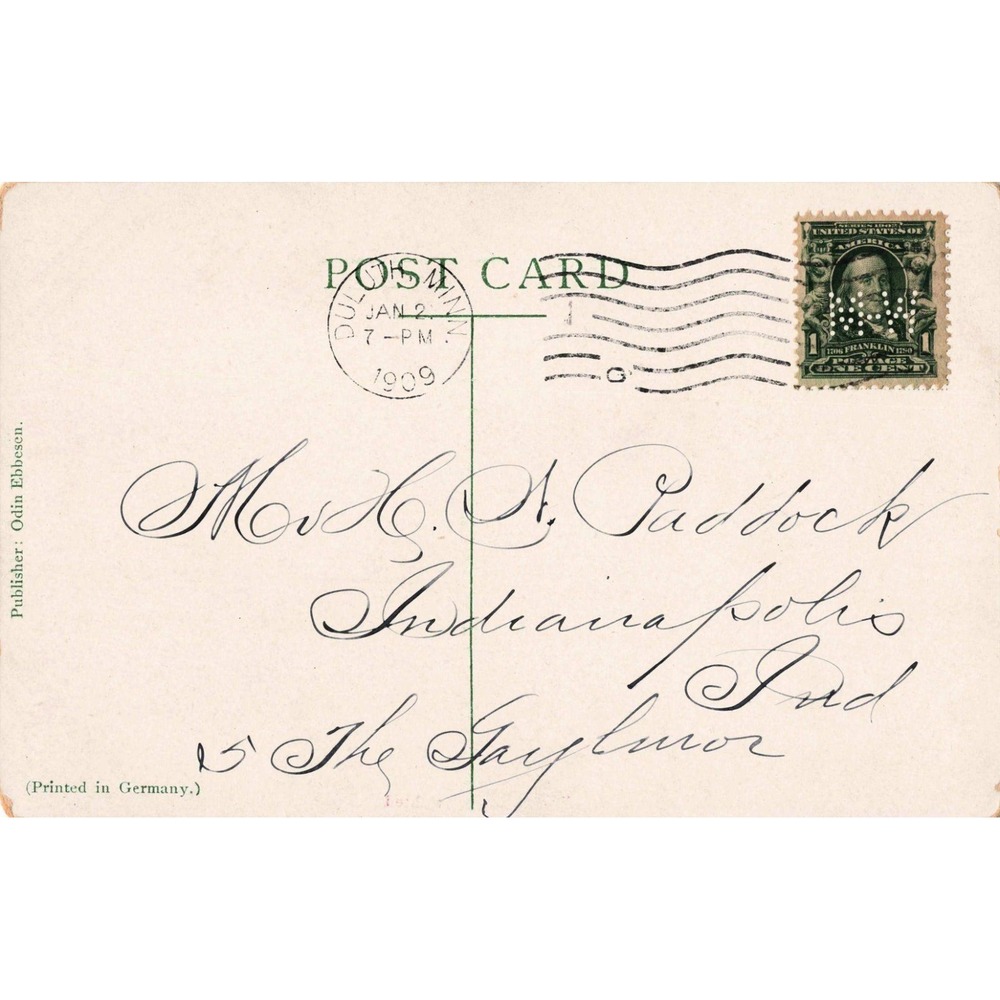 POST CARD
DULUTH, MINN.
JAN 2.
7-PM
1909
SERIES 1902
UNITED STATES OF
AMERICA
1 1706 FRANKLIN 1790 1
POSTAGE
ONE CENT
Mr H. A. Paddock
Indianapolis
Ind
5 The Gaylmor
Publisher: Odin Ebbesen.
(Printed in Germany.)